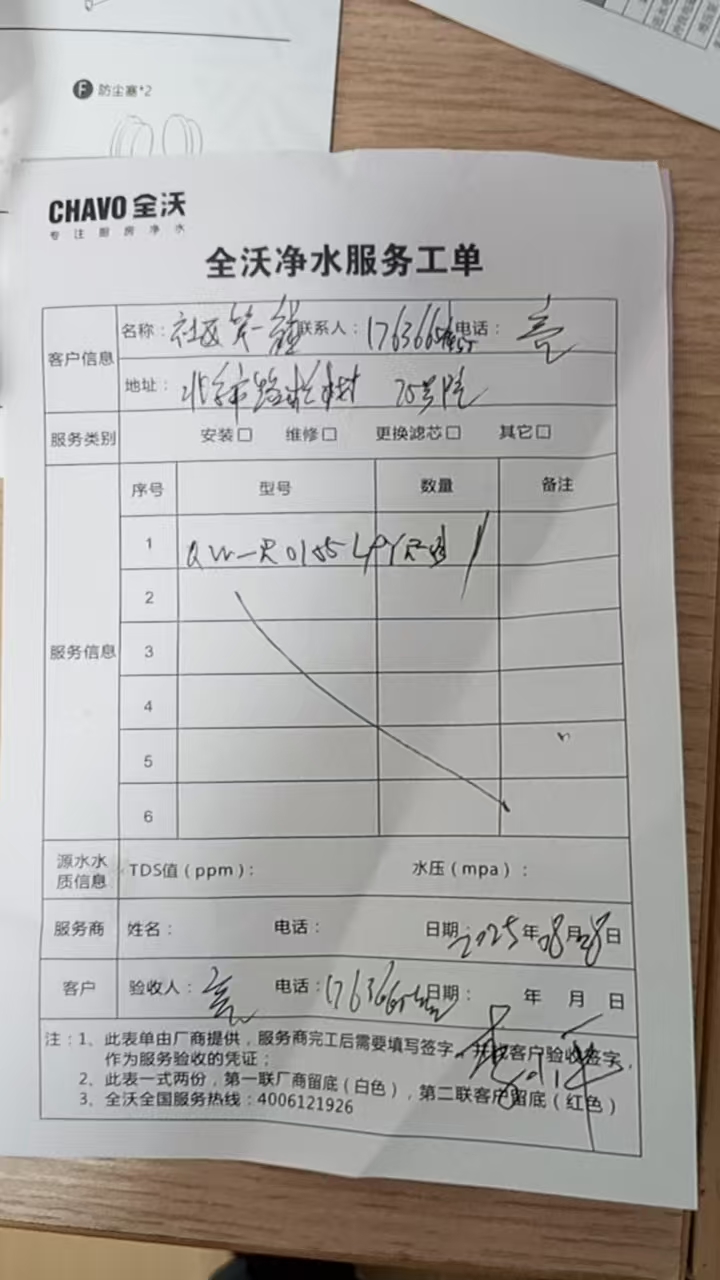 F 防尘塞*2
CHAVO 全沃
专注厨房净水
全沃净水服务工单
客户信息
名称：社区第一 联系人：1763666 电话：
地址：北京市 75号院
服务类别 安装□ 维修□ 更换滤芯□ 其它□
服务信息
序号 型号 数量 备注
1 QW-R0185 1
2
3
4
5
6
源水水质信息 TDS值（ppm）： 水压（mpa）：
服务商 姓名： 电话： 日期：2025年08月28日
客户 验收人： 电话：176366 日期： 年 月 日
注：1、此表单由厂商提供，服务商完工后需要填写签字，并取客户验收签字，
作为服务验收的凭证；
2、此表一式两份，第一联厂商留底（白色），第二联客户留底（红色）
3、全沃全国服务热线：4006121926